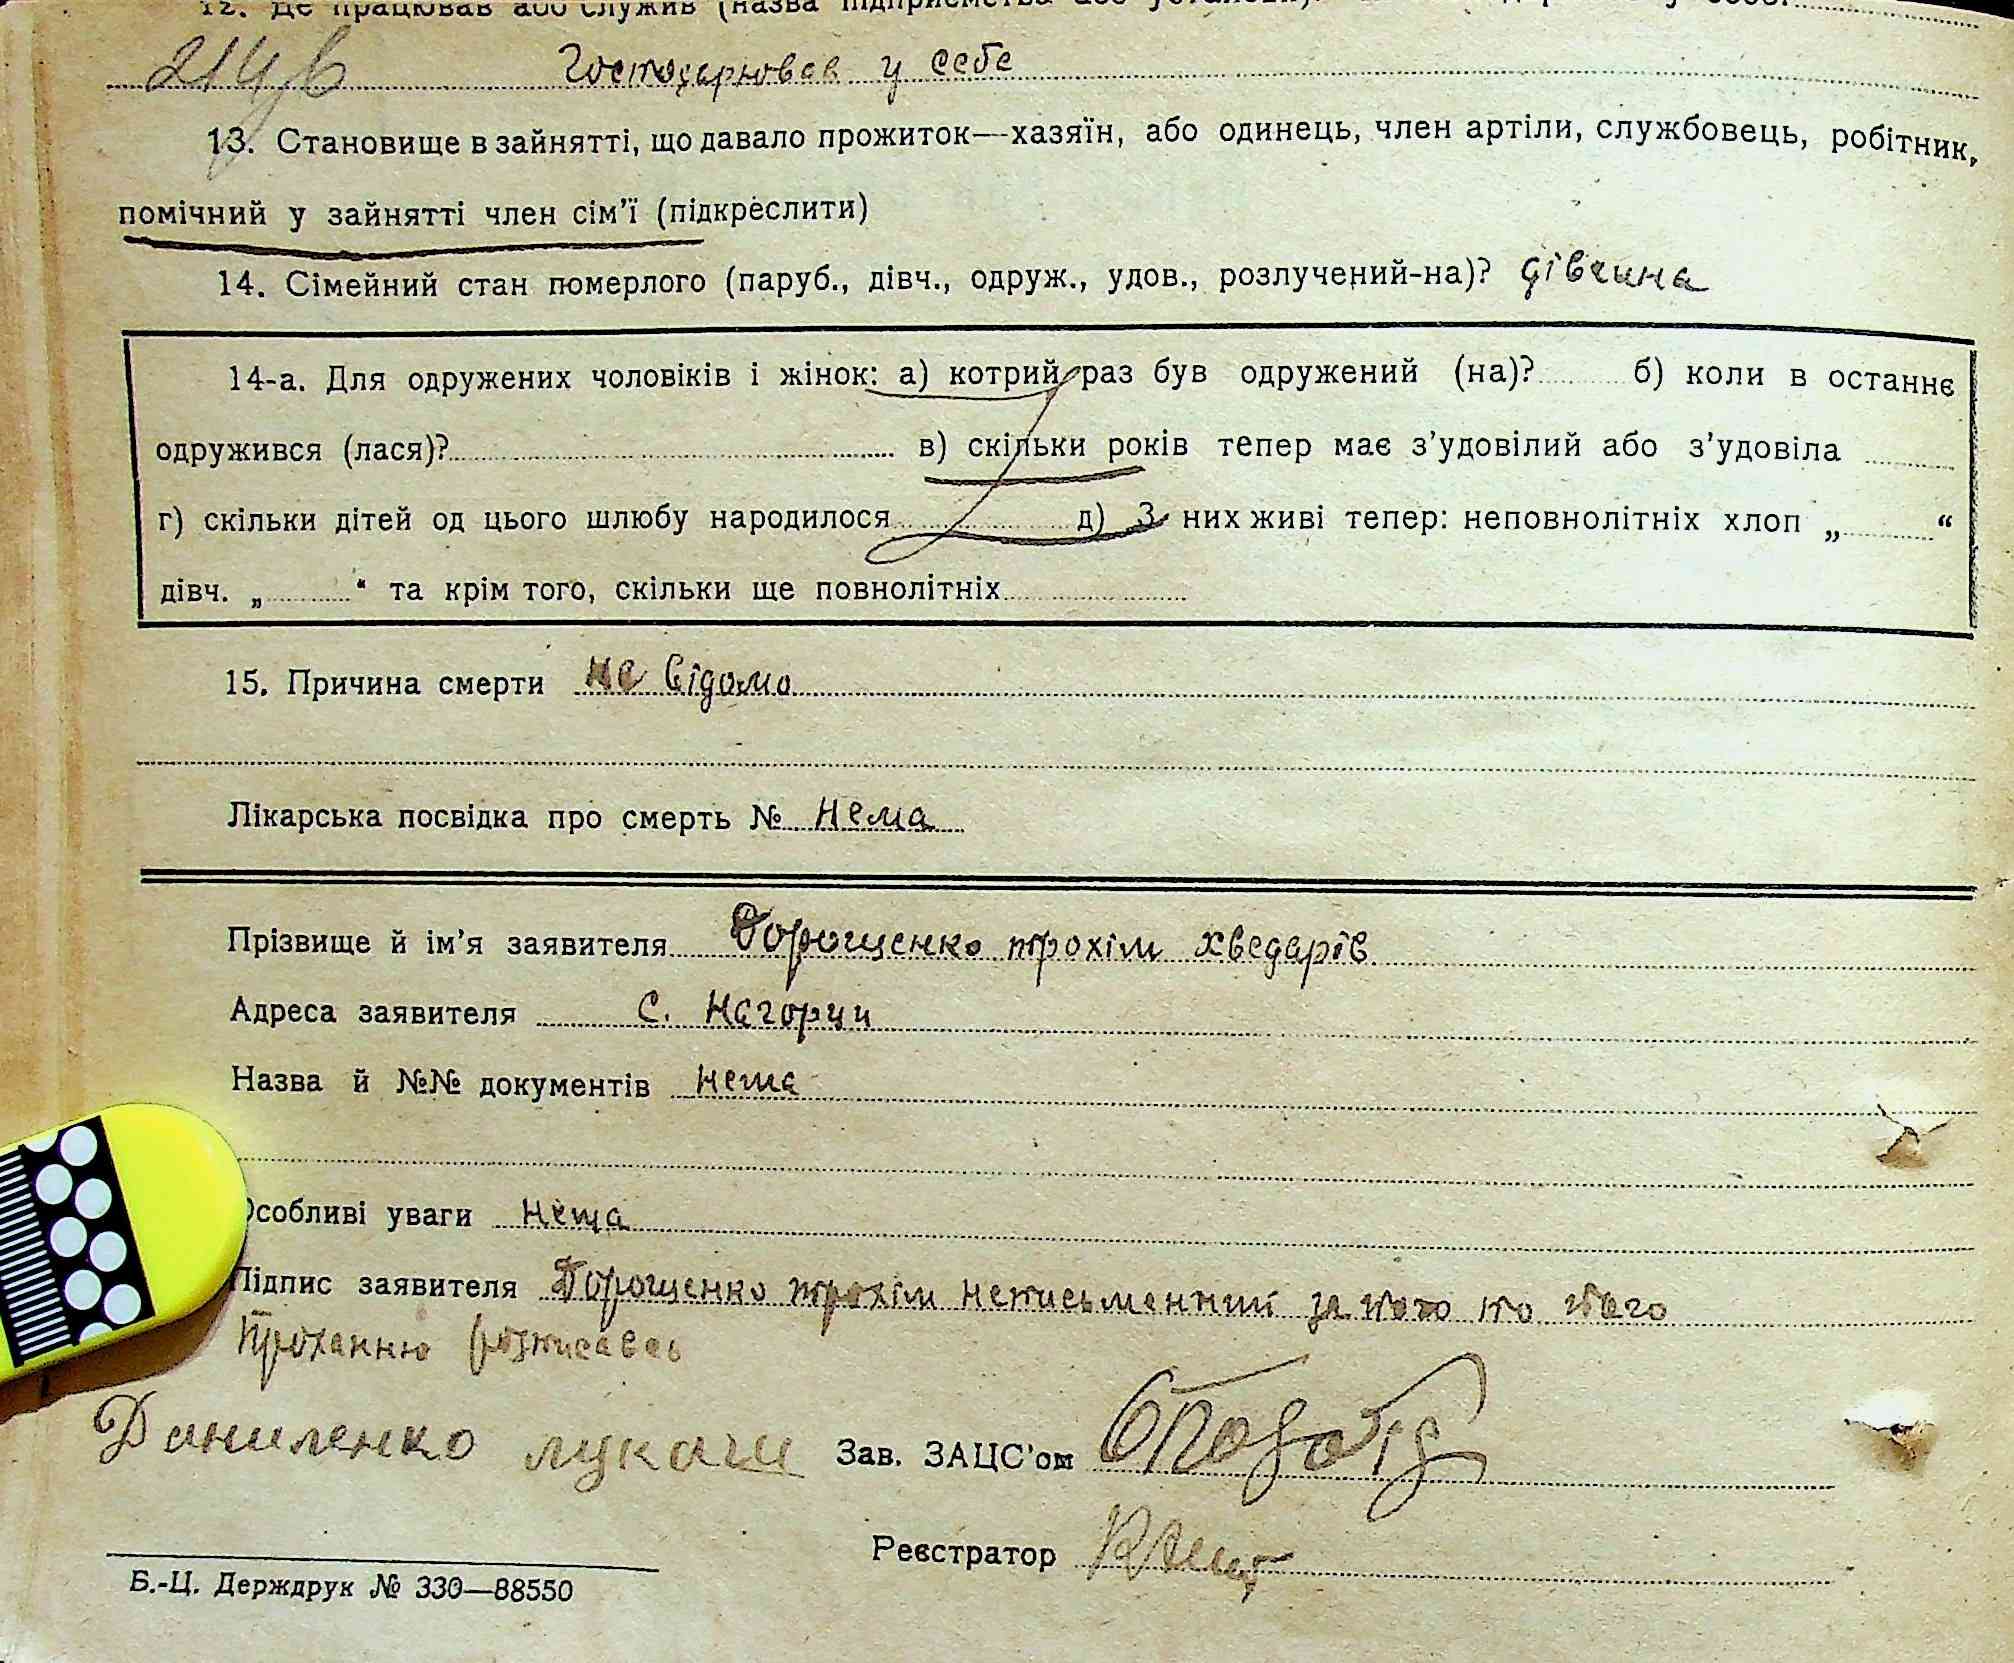 12. Де працював або служив (назва підприємства або установи)
господарював у себе
13. Становище в зайнятті, що давало прожиток—хазяїн, або одинець, член артіли, службовець, робітник,
помічний у зайнятті член сім’ї (підкреслити)
14. Сімейний стан померлого (паруб., дівч., одруж., удов., розлучений-на)? дівчина
14-а. Для одружених чоловіків і жінок: а) котрий раз був одружений (на)? б) коли в останнє
одружився (лася)? в) скільки років тепер має з’удовілий або з’удовіла
г) скільки дітей од цього шлюбу народилося д) З них живі тепер: неповнолітніх хлоп „ “
дівч. „ “ та крім того, скільки ще повнолітніх
15. Причина смерти не відомо
Лікарська посвідка про смерть № нема
Прізвище й ім’я заявителя Дорощенко трохім хведарів
Адреса заявителя с. Нагорци
Назва й №№ документів нема
Особливі уваги нема
Підпис заявителя Дорощенко трохім неписьменний за його по його
проханню розписавсь
Даниленко лукаш Зав. ЗАЦС’ом
Реєстратор
Б.-Ц. Держдрук № 330—88550